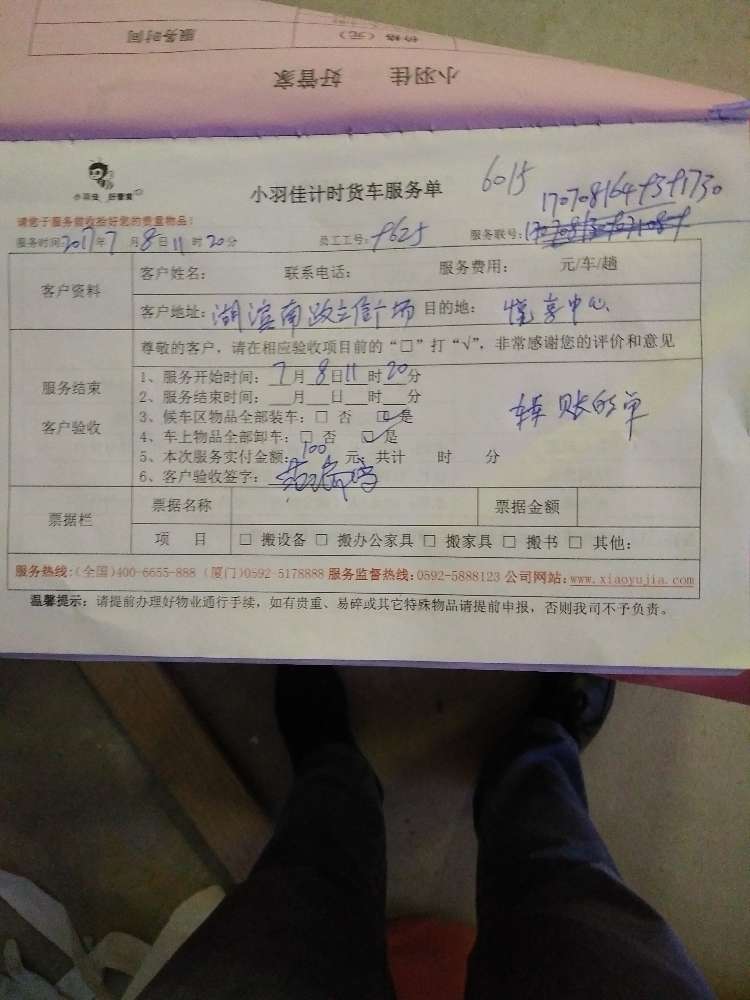 服务时间 价格(元)
小羽佳 好管家
小羽佳 好管家
小羽佳计时货车服务单 6015
请您于服务前收拾好您的贵重物品!
服务时间2017年7月8日11时20分 员工工号: 9625 服务联号:
客户资料 客户姓名: 联系电话: 服务费用: 元/车/趟
客户地址: 湖滨南路立信广场 目的地: 悦享中心
服务结束 客户验收 尊敬的客户,请在相应验收项目前的“□”打“√”,非常感谢您的评价和意见
1、服务开始时间: 7月8日11时20分
2、服务结束时间: 月 日 时 分
3、候车区物品全部装车: □ 否 ☑ 是
4、车上物品全部卸车: □ 否 ☑ 是
5、本次服务实付金额: 100 元, 共计 时 分
6、客户验收签字:
票据栏 票据名称 票据金额
项目 □ 搬设备 □ 搬办公家具 □ 搬家具 □ 搬书 □ 其他:
服务热线:(全国)400-6655-888 (厦门)0592-5178888 服务监督热线:0592-5888123 公司网站:www.xiaoyujia.com
温馨提示: 请提前办理好物业通行手续,如有贵重、易碎或其它特殊物品请提前申报,否则我司不予负责。